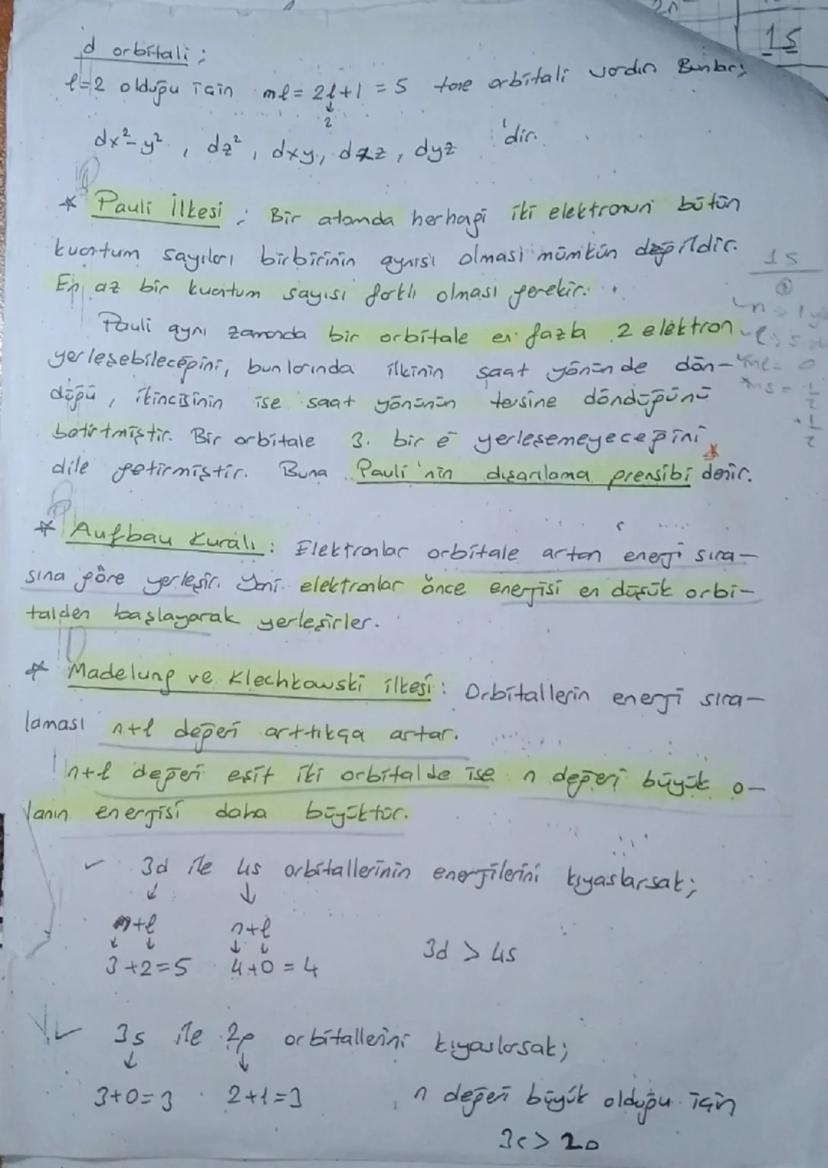 1s
d orbitali;
l=2 olduğu için ml = 2l+1 = 5 tane orbitali vardır. Bunlar;
↓
2
dx²-y², dz², dxy, dxz, dyz 'dir.
* Pauli İlkesi; Bir atomda herhagi iki elektronun bütün
kuantum sayıları birbirinin aynısı olması mümkün değildir.
En az bir kuantum sayısı farklı olması gerekir.
Pauli aynı zamanda bir orbitale en fazla 2 elektron
yerleşebileceğini, bunlarında ilkinin saat yönünde dön-
düğü, ikincisinin ise saat yönünün tersine döndüğünü
belirtmiştir. Bir orbitale 3. bir e⁻ yerleşemeyeceğini
dile getirmiştir. Buna Pauli'nin dışarılama prensibi denir.
* Aufbau Kuralı: Elektronlar orbitale artan enerji sıra-
sına göre yerleşir. Yani elektronlar önce enerjisi en düşük orbi-
talden başlayarak yerleşirler.
* Madelung ve Klechkowski ilkesi: Orbitallerin enerji sıra-
laması n+l değeri arttıkça artar.
n+l değeri eşit iki orbitalde ise n değeri büyük o-
lanın enerjisi daha büyüktür.
✓ 3d ile 4s orbitallerinin enerjilerini kıyaslarsak;
↓ ↓
n+l n+l
↓ ↓ ↓ ↓
3+2=5 4+0=4 3d > 4s
✓ 3s ile 2p orbitallerini kıyaslarsak;
↓ ↓
3+0=3 2+1=3 n değeri büyük olduğu için
3s > 2p
1s